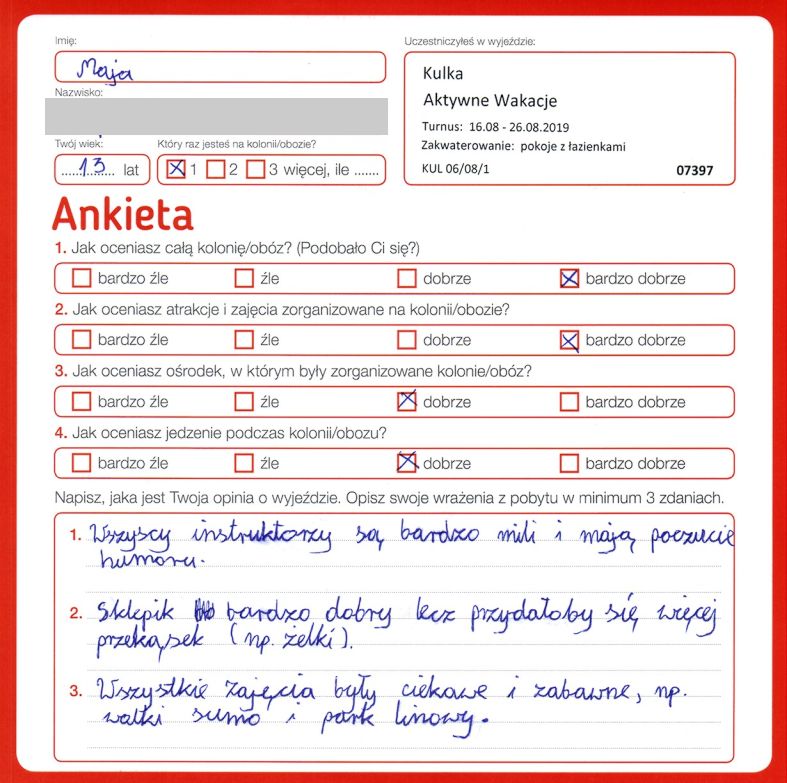 Imię:
Maja
Nazwisko:
Twój wiek:
Który raz jesteś na kolonii/obozie?
13 lat
1 2 3 więcej, ile .......
Uczestniczyłeś w wyjeździe:
Kulka
Aktywne Wakacje
Turnus: 16.08 - 26.08.2019
Zakwaterowanie: pokoje z łazienkami
KUL 06/08/1 07397
Ankieta
1. Jak oceniasz całą kolonię/obóz? (Podobało Ci się?)
bardzo źle źle dobrze bardzo dobrze
2. Jak oceniasz atrakcje i zajęcia zorganizowane na kolonii/obozie?
bardzo źle źle dobrze bardzo dobrze
3. Jak oceniasz ośrodek, w którym były zorganizowane kolonie/obóz?
bardzo źle źle dobrze bardzo dobrze
4. Jak oceniasz jedzenie podczas kolonii/obozu?
bardzo źle źle dobrze bardzo dobrze
Napisz, jaka jest Twoja opinia o wyjeździe. Opisz swoje wrażenia z pobytu w minimum 3 zdaniach.
1. Wszyscy instruktorzy są bardzo mili i mają poczucie
humoru.
2. Sklepik bardzo dobry lecz przydałoby się więcej
przekąsek (np. żelki).
3. Wszystkie zajęcia były ciekawe i zabawne, np.
walki sumo i park linowy.